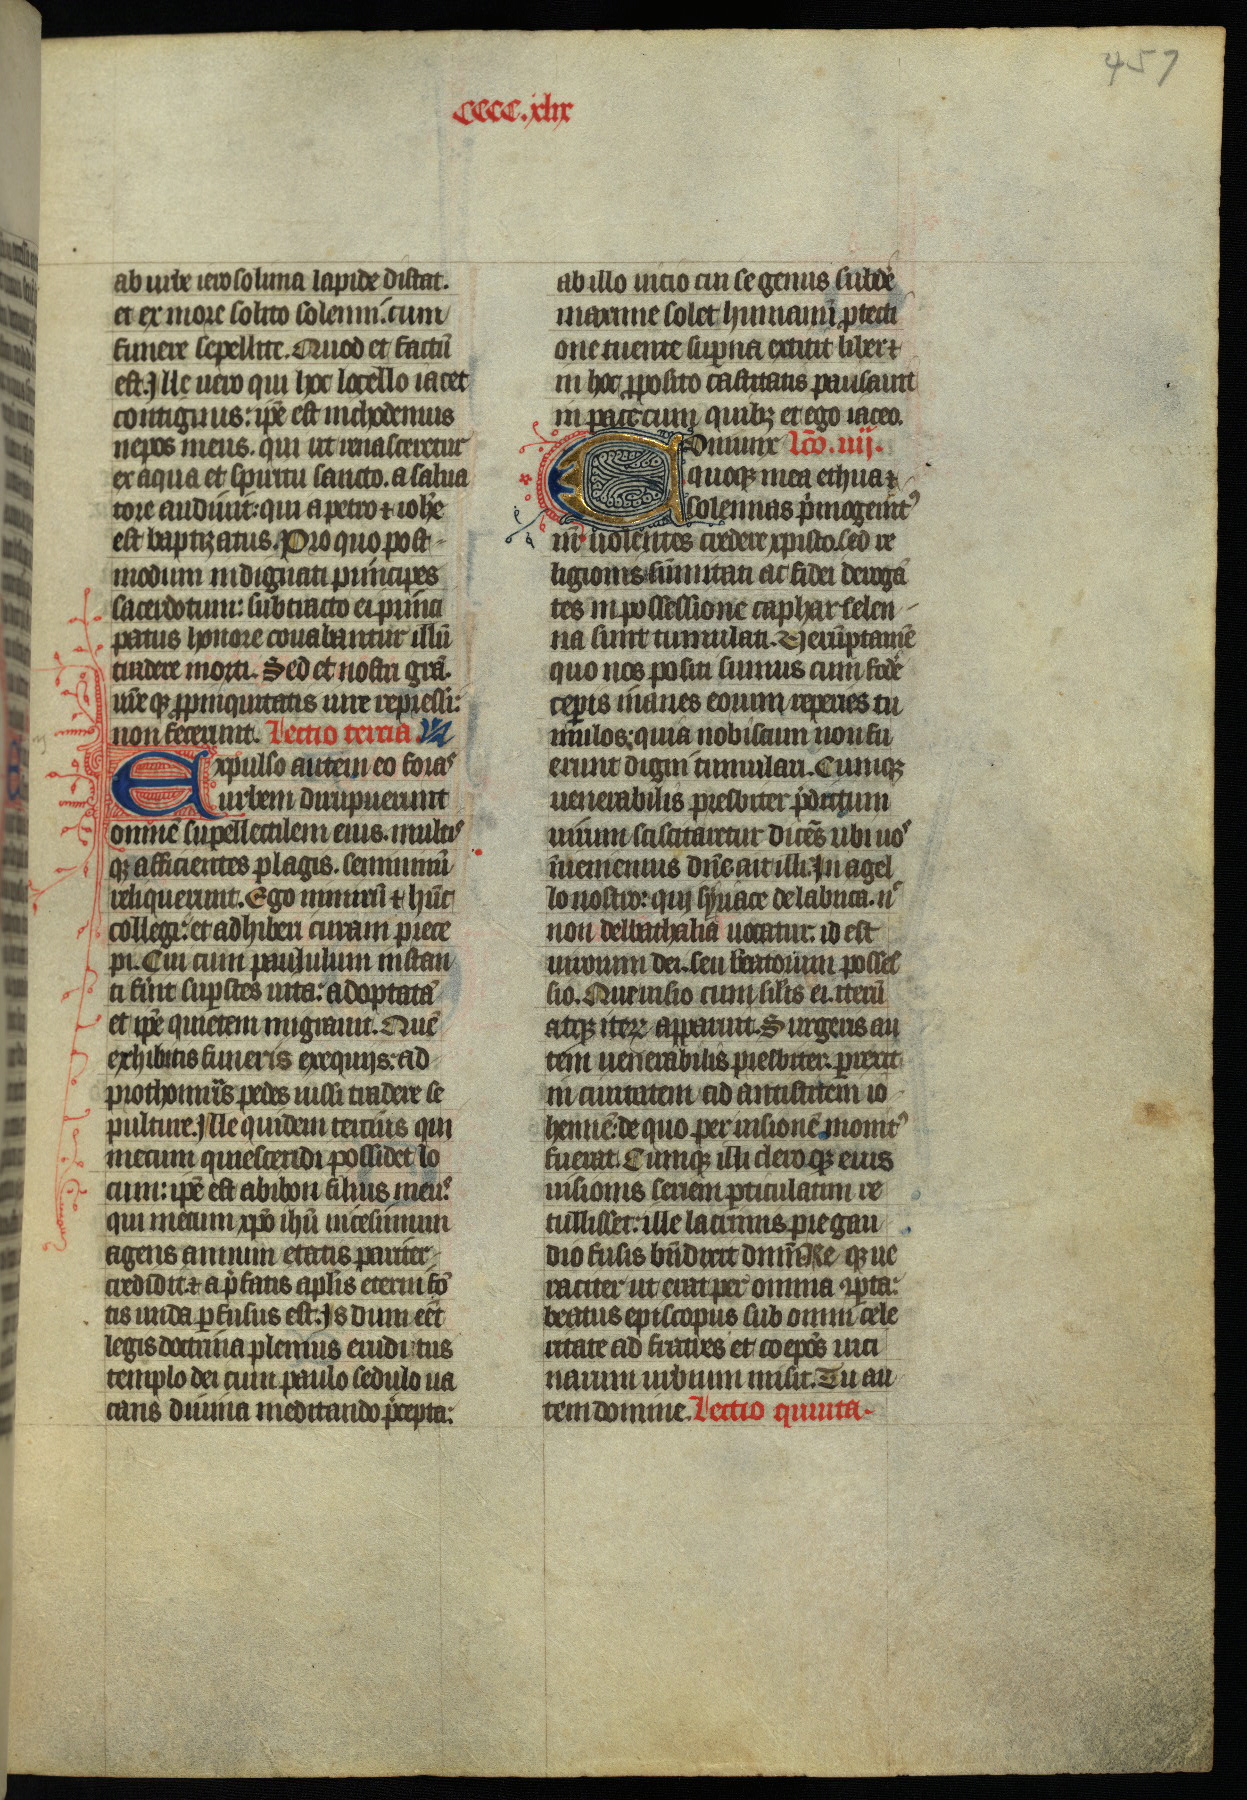 457
cccc.xlix
ab urbe ierosolima lapide distat.
et ex more solito solenni. cum
funere sepellite. Quod et factū
est. Ille uero qui hoc locello iacet
contiguus: ip̄e est nichodemus
nepos meus. qui ut renasceretur
ex aqua et spiritu sancto. a salua
tore audiuit: qui a petro ⁊ ioh̄e
est baptizatus. Pro quo post
modum indignati principes
sacerdotum: subtracto ei princi
patus honore couabantur illū
tradere morti. Sed et nostri grā.
uīe qꝫ ꝓpinquitatis iure repressi:
non fecerunt. Lectio tercia
Expulso autem eo foraˢ
urbem diripuerunt
omnē supellectilem eius. multiˢ
qꝫ afficientes plagis. semiuiuū
reliquerunt. Ego miseratꝰ hūc
collegi: et adhiberi curam prece
pi. Cui cum paululum instan
ti fūit supstes uita: adoptatā
et ip̄e quietem migrauit. Quē
exhibitis funeris exequijs: ad
prothomr̄is pedes iussi tradere se
pulture. Ille quidem tercius qui
mecum quiescendi possidet lo
cum: ip̄e est abibon filius meuˢ.
qui mecum xp̄o ihū uicesimum
agens annum etatis pariter
credidit. ⁊ a p̄fatis aplis eterni fō
tis unda ꝑfusus est. Is dum eēt
legis doctrina plenius eruditus
templo dei cum paulo sedulo ua
cans diuina meditando p̄cepta:
ab illo uicio cui se genus subdē
maxime solet humanū ꝓtecti
one tuente supna extitit liber ⁊
in hoc ꝓposito castitatis pausauit
in pace. cum quibꝫ et ego iaceo.
Coniunx lcō. iiij.
quoqꝫ mea ethua ⁊
solennas p̄mogenitꝰ
nr̄ nolentes credere xpisto. sed re
ligionis sūnitati ac fidei derogā
tes in possessione caphar selen
na sunt tumulati. Verūptamē
quo nos positi sumus cum fodē
ceperis inanes eorum reperies tu
mulos: quia nobiscum non fu
erunt digni tumulari. Cumqꝫ
uenerabilis presbiter p̄dictum
uirum sciscitaretur dicēs ubi uoˢ
īueniemus dn̄e ait illi. In agel
lo nostro: qui syriace delabria. nˢ
non delbathalia uocatur: id est
uirorum dei. seu beatorum posses
sio. Que uisio cum filis ei. iterū
atqꝫ iterꝫ apparuit. Surgens au
tem uenerabilis presbiter. prexit
in ciuitatem ad antistitem io
hennē: de quo per uisionē monitꝰ
fuerat. Cumqꝫ illi cleroqꝫ eius
uisionis seriem ꝑticulatim re
tullisset: ille lacrimis pre gau
dio fusis bn̄dixit dnm̄. Re qꝫ ue
raciter ut erat per omnia ꝯperta:
beatus episcopus sub omni cele
ritate ad fratres et coepōs uici
narum urbium misit. Tu au
tem domine. Lectio quinta.